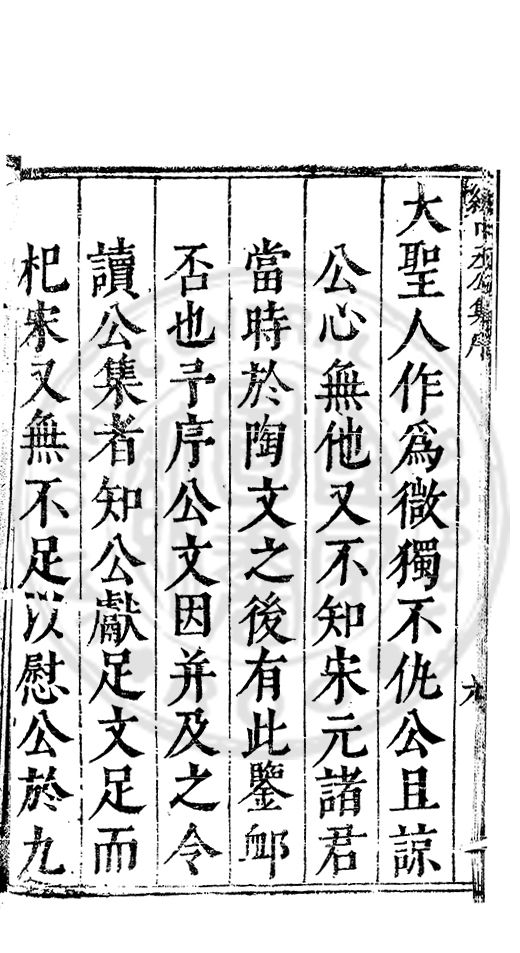 公集序
大聖人作爲微獨不仇公且諒
公心無他又不知宋元諸君
當時於陶文之後有此鑒卹
否也予序公文因并及之令
讀公集者知公獻足文足而
杞宋又無不足以慰公於九